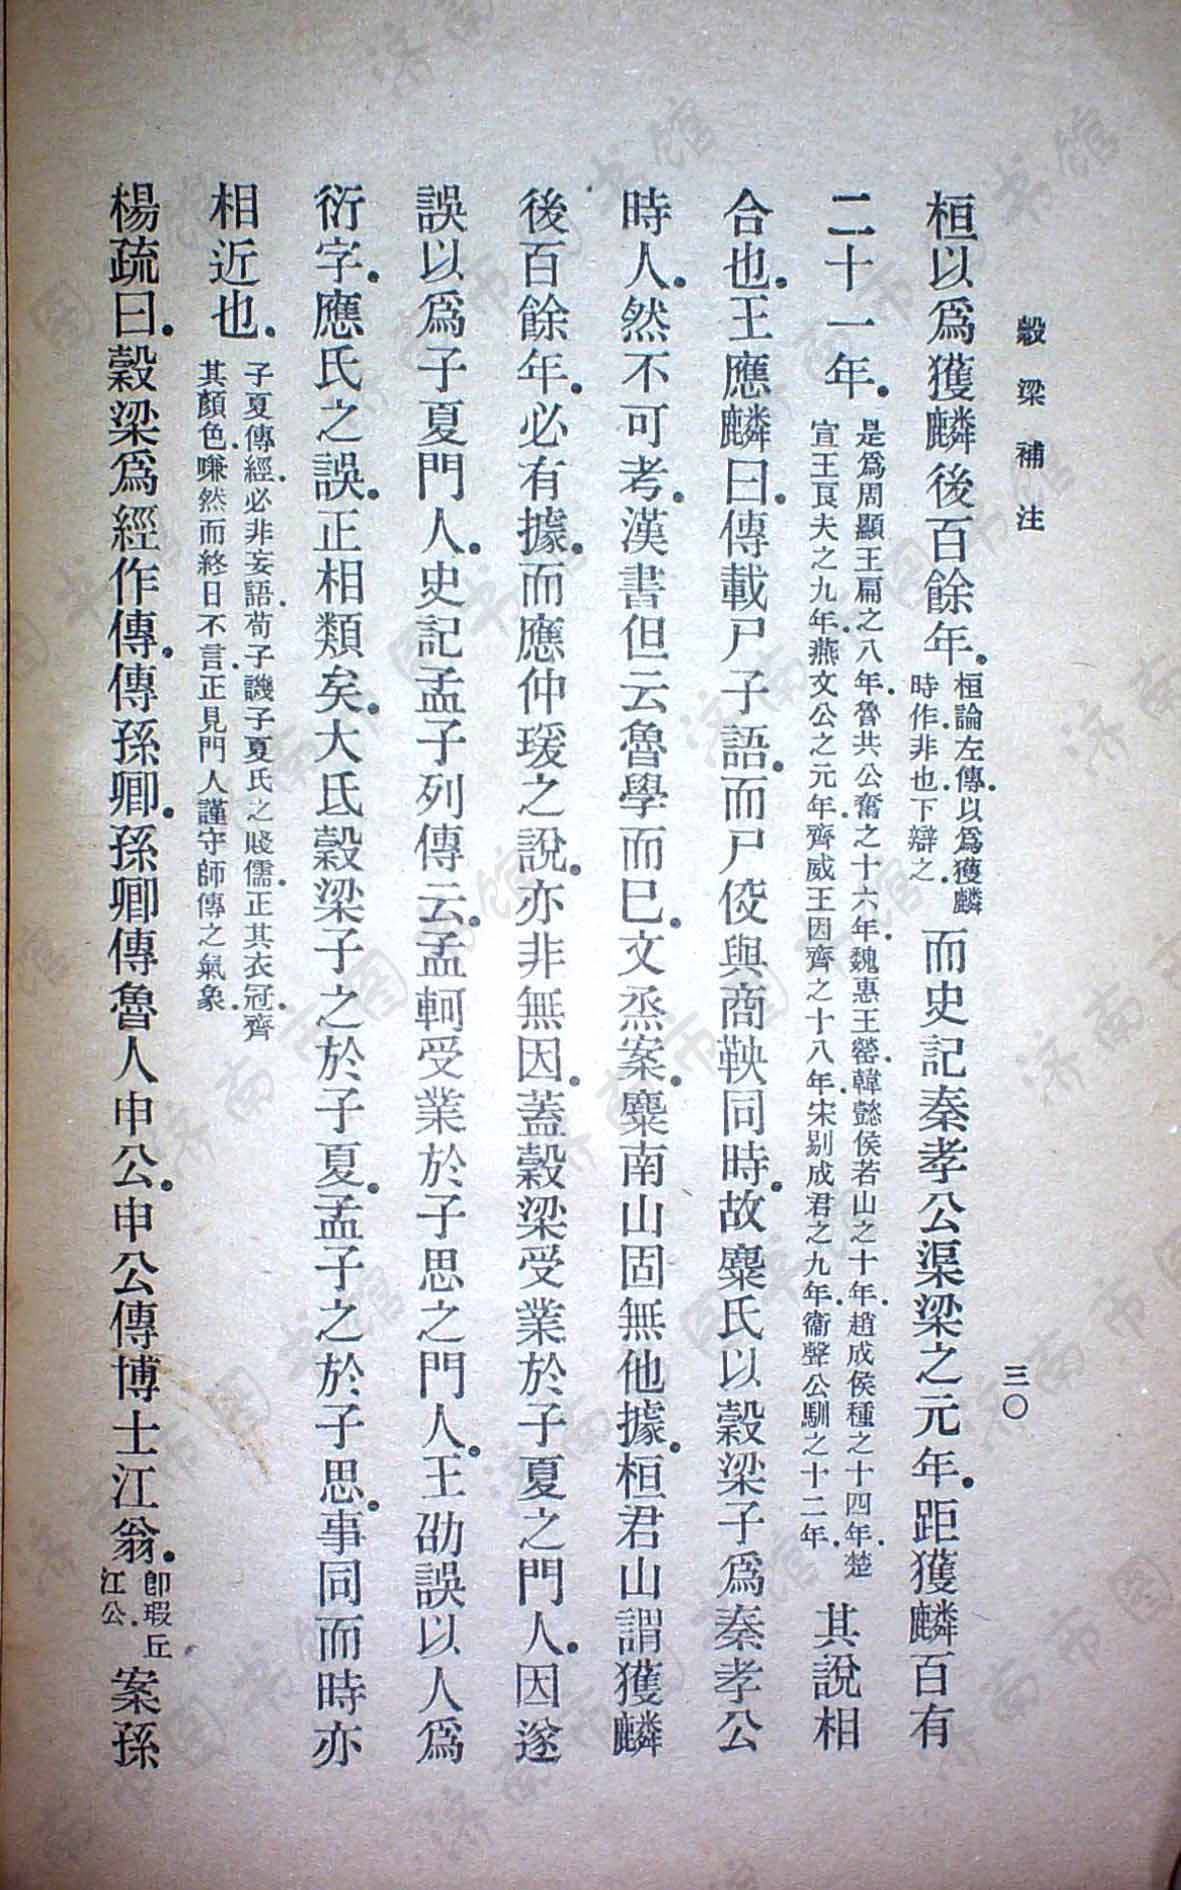 穀梁補注
三〇
桓以爲獲麟後百餘年。桓論左傳。以爲獲麟時作。非也。下辯之。而史記秦孝公渠梁之元年。距獲麟百有
二十一年。是爲周顯王扁之八年。魯共公奮之十六年。魏惠王罃。韓懿侯若山之十年。趙成侯種之十四年。楚宣王良夫之九年。燕文公之元年。齊威王因齊之十八年。宋剔成君之九年。衞聲公馴之十二年。其說相
合也。王應麟曰。傳載尸子語。而尸佼與商鞅同時。故麋氏以穀梁子爲秦孝公
時人。然不可考。漢書但云魯學而已。文烝案。麋南山固無他據。桓君山謂獲麟
後百餘年。必有據。而應仲瑗之說。亦非無因。蓋穀梁受業於子夏之門人。因遂
誤以爲子夏門人。史記孟子列傳云。孟軻受業於子思之門人。王劭誤以人爲
衍字。應氏之誤。正相類矣。大氐穀梁子之於子夏。孟子之於子思。事同而時亦
相近也。子夏傳經。必非妄語。荀子譏子夏氏之賤儒。正其衣冠。齊其顏色。嗛然而終日不言。正見門人謹守師傳之氣象。
楊疏曰。穀梁爲經作傳。傳孫卿。孫卿傳魯人申公。申公傳博士江翁。卽瑕丘江公。案孫